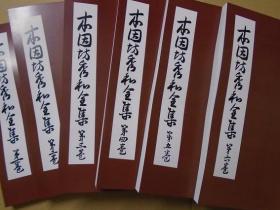 本因坊秀和全集 第一巻
本因坊秀和全集 第二巻
本因坊秀和全集 第三巻
本因坊秀和全集 第四巻
本因坊秀和全集 第五巻
本因坊秀和全集 第六巻